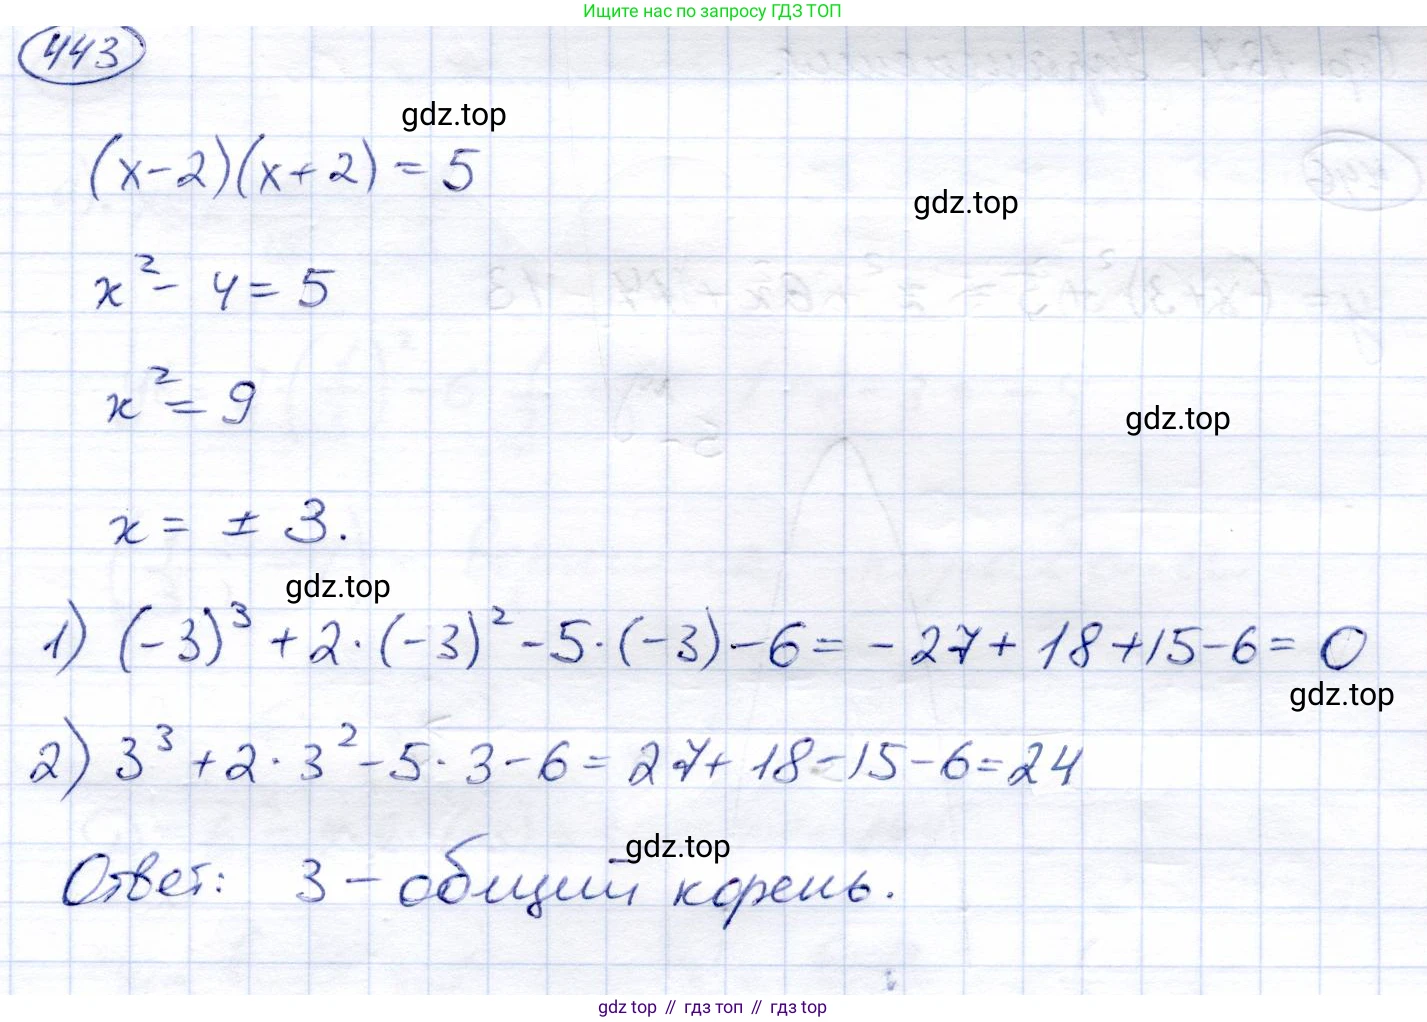 Ищите нас по запросу ГДЗ ТОП
443
gdz.top
(x-2)(x+2) = 5
gdz.top
x² - 4 = 5
x² = 9
gdz.top
x = ± 3.
gdz.top
1) (-3)³ + 2·(-3)² - 5·(-3) - 6 = -27 + 18 + 15 - 6 = 0
gdz.top
2) 3³ + 2·3² - 5·3 - 6 = 27 + 18 - 15 - 6 = 24
gdz.top
Ответ: 3 - общий корень.
gdz top // гдз топ // гдз top